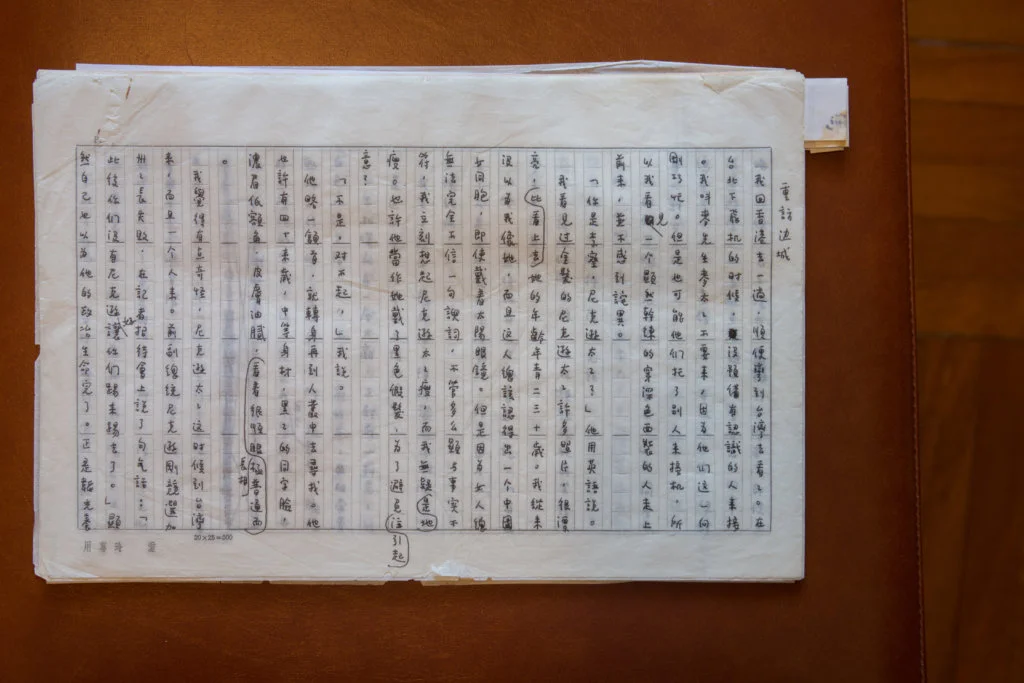 重訪边城
我回香港去一趟,順便彎到台灣去看々。在
台北下飛机的时候,沒預備有認識的人來接
。我叫麥先生麥太々不要來,因為他们这一向
剛巧忙。但是也可能他们托了別人來接机,所
以我看見一个顯然幹練的穿深色西裝的人走上
前來,並不感到詫異。
「你是李察·尼克遜太々?」他用英語說。
我看見过金髮的尼克遜太々許多照片,很漂
亮,比看上去她的年齡年青二三十歲。我從來
沒以為我像她,而且这人總該認得出一个中國
女同胞,即使戴着太陽眼鏡。但是因為女人總
無法完全不信一句諛詞,不管多么顯与事实不
符,我立刻想起尼克遜太々瘦,而我無疑是地
瘦。也許他當作她戴了黑色假髮,為了避免注
引起
意?
「不是,对不起,」我說。
他略一頷首,就轉身再到人叢中去尋找。他
也許有四十來歲,中等身材,黑々的同字臉,
濃眉低額角,皮膚油膩,看着很順眼極普通而
長相
。
我覺得有点奇怪,尼克遜太々这时候到台灣
來,而且一个人來。前副總統尼克遜剛競選加
州々長失敗,在記者招待會上說了句气話:「
此後你们沒有尼克遜好讓你们踢來踢去了。」顯
然自己也以為他的政治生命完了。正是韜光養
20×25=500
愛玲寫用